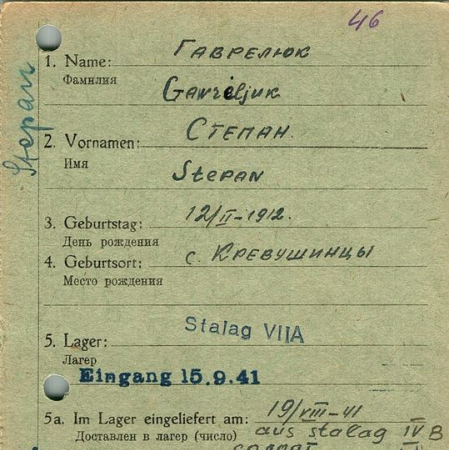 46
1. Name: ГАВРЕЛЮК
Фамилия
Gawriljuk
2. Vornamen: СТЕПАН.
Имя
Stepan
Stepan
3. Geburtstag: 12/II-1912.
День рождения
4. Geburtsort: с. КРЕВУШИНЦЫ
Место рождения
Stalag VIIA
5. Lager:
Лагерь
Eingang 15.9.41
5a. Im Lager eingeliefert am: 19/VIII-41
Доставлен в лагерь (число) aus Stalag IV B
солдат